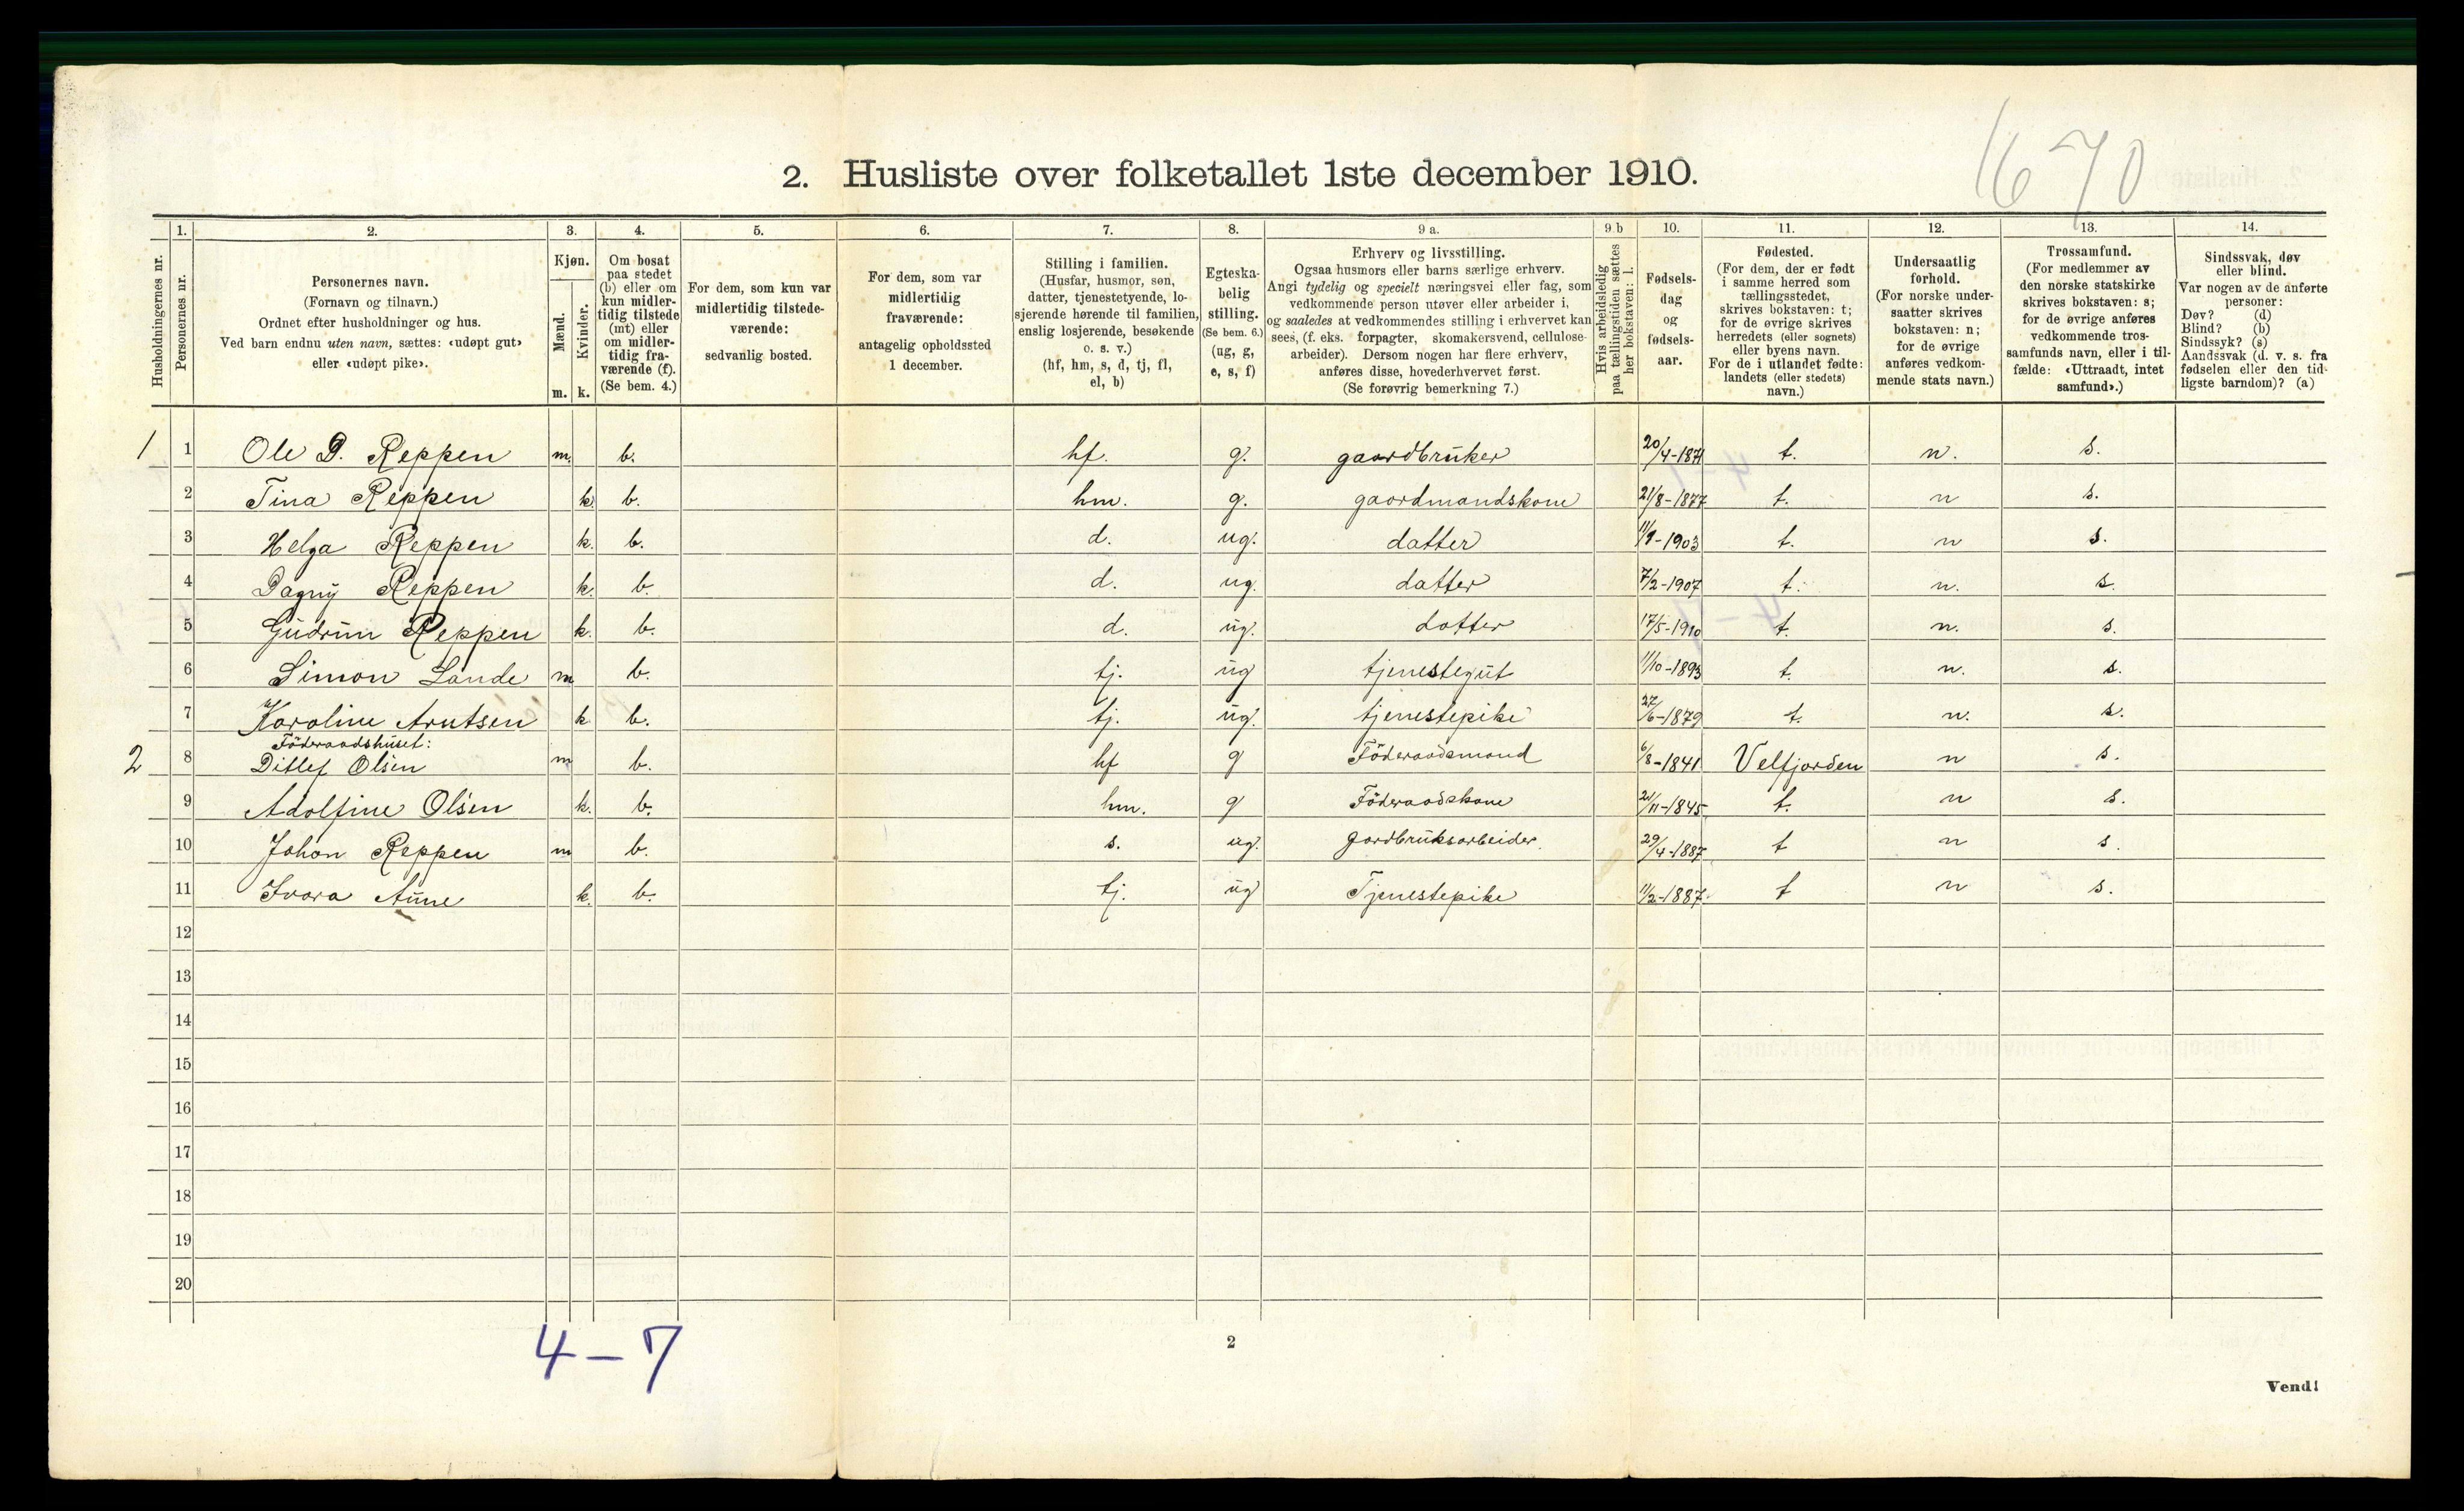 1670
2. Husliste over folketallet 1ste december 1910.
Husholdningernes nr.
1.
Personernes nr.
2.
Personernes navn.
(Fornavn og tilnavn.)
Ordnet efter husholdninger og hus.
Ved barn endnu uten navn, sættes: «udøpt gut»
eller «udøpt pike».
3.
Kjøn.
Mænd.
Kvinder.
m. k.
4.
Om bosat
paa stedet
(b) eller om
kun midler-
tidig tilstede
(mt) eller
om midler-
tidig fra-
værende (f).
(Se bem. 4.)
5.
For dem, som kun var
midlertidig tilstede-
værende:
sedvanlig bosted.
6.
For dem, som var
midlertidig
fraværende:
antagelig opholdssted
1 december.
7.
Stilling i familien.
(Husfar, husmor, søn,
datter, tjenestetyende, lo-
sjerende hørende til familien,
enslig losjerende, besøkende
o. s. v.)
(hf, hm, s, d, tj, fl,
el, b)
8.
Egteska-
belig
stilling.
(Se bem. 6.)
(ug, g,
e, s, f)
9 a.
Erhverv og livsstilling.
Ogsaa husmors eller barns særlige erhverv.
Angi tydelig og specielt næringsvei eller fag, som
vedkommende person utøver eller arbeider i,
og saaledes at vedkommendes stilling i erhvervet kan
sees, (f. eks. forpagter, skomakersvend, cellulose-
arbeider). Dersom nogen har flere erhverv,
anføres disse, hovederhvervet først.
(Se forøvrig bemerkning 7.)
9 b
Hvis arbeidsledig
paa tællingstiden sættes
her bokstaven: l.
10.
Fødsels-
dag
og
fødsels-
aar.
11.
Fødested.
(For dem, der er født
i samme herred som
tællingsstedet,
skrives bokstaven: t;
for de øvrige skrives
herredets (eller sognets)
eller byens navn.
For de i utlandet fødte:
landets (eller stedets)
navn.)
12.
Undersaatlig
forhold.
(For norske under-
saatter skrives
bokstaven: n;
for de øvrige
anføres vedkom-
mende stats navn.)
13.
Trossamfund.
(For medlemmer av
den norske statskirke
skrives bokstaven: s;
for de øvrige anføres
vedkommende tros-
samfunds navn, eller i til-
fælde: «Uttraadt, intet
samfund».)
14.
Sindssvak, døv
eller blind.
Var nogen av de anførte
personer:
Døv? (d)
Blind? (b)
Sindssyk? (s)
Aandssvak (d. v. s. fra
fødselen eller den tid-
ligste barndom)? (a)
1 1 Ole D. Reppen m. b. hf. g. gaardbruker 20/4-1871 t. n. s.
2 Tina Reppen k. b. hm. g. gaardmandskone 21/8-1877 t. n s.
3 Helga Reppen k. b. d. ug. datter 11/9-1903 t. n s.
4 Dagny Reppen k. b. d. ug. datter 7/2-1907 t. n. s.
5 Gudrun Reppen k. b. d. ug. datter 17/5-1910 t. n. s.
6 Simon Lande m b. tj. ug tjenestegut 11/10-1893 t. n. s.
7 Karoline Arntsen k b. tj. ug. tjenestepike 27/6-1879 t. n. s.
Föderaadshuset:
2 8 Ditlef Olsen m b. hf g Föderaadsmand 6/8-1841 Velfjorden n s.
9 Adolfine Olsen k. b. hm. g Föderaadskone 21/11-1845 t. n s.
10 Johan Reppen m b. s. ug. gardbruksarbeider. 29/4-1887 t n s.
11 Ivara Aune k. b. tj. ug Tjenestepike 11/2-1887. t n s.
12
13
14
15
16
17
18
19
20
4-7
2
Vend!